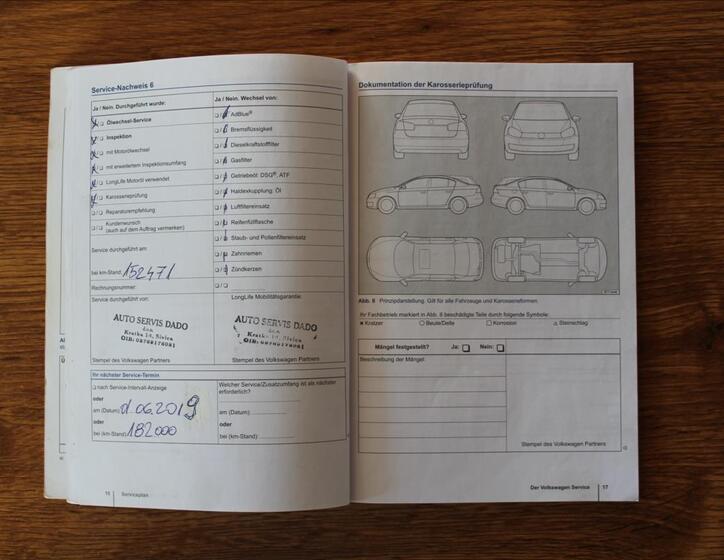 Service-Nachweis 6
Ja / Nein. Durchgeführt wurde:
Ölwechsel-Service
Inspektion
mit Motorölwechsel
mit erweitertem Inspektionsumfang
LongLife Motoröl verwendet
Karosserieprüfung
Reparaturempfehlung
Kundenwunsch
(auch auf dem Auftrag vermerken)
Service durchgeführt am:
bei km-Stand: 152471
Rechnungsnummer:
Ja / Nein. Wechsel von:
AdBlue®
Bremsflüssigkeit
Dieselkraftstofffilter
Gasfilter
Getriebeöl: DSG®, ATF
Haldexkupplung: Öl
Luftfiltereinsatz
Reifenfüllflasche
Staub- und Pollenfiltereinsatz
Zahnriemen
Zündkerzen
Service durchgeführt von:
AUTO SERVIS DADO
Stempel des Volkswagen Partners
LongLife Mobilitätsgarantie:
AUTO SERVIS DADO
Stempel des Volkswagen Partners
Ihr nächster Service-Termin
nach Service-Intervall-Anzeige
oder
am (Datum): 06.2019
oder
bei (km-Stand): 182000
Welcher Service/Zusatzumfang ist als nächster
erforderlich?
am (Datum):
oder
bei (km-Stand):
16 Serviceplan
Dokumentation der Karosserieprüfung
Abb. 8 Prinzipdarstellung. Gilt für alle Fahrzeuge und Karosserieformen.
Ihr Fachbetrieb markiert in Abb. 8 beschädigte Teile durch folgende Symbole:
Kratzer Beule/Delle Korrosion Steinschlag
Mängel festgestellt? Ja: Nein:
Beschreibung der Mängel:
Stempel des Volkswagen Partners
Der Volkswagen Service 17